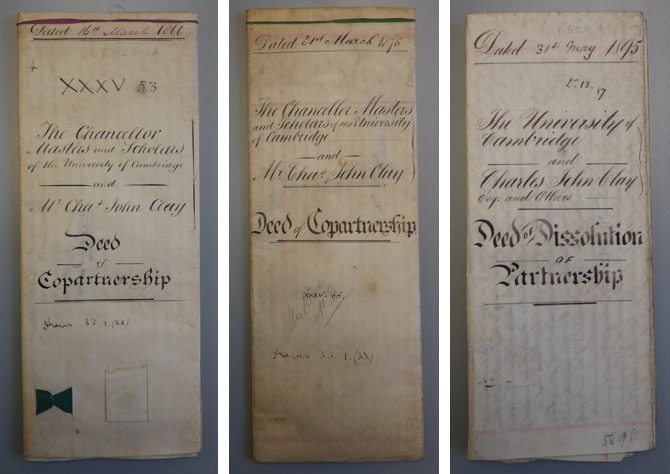 Dated 16th March 1866
4
XXXV 53
The Chancellor
Masters and Scholars
of the University of Cambridge
and
Mr Chas John Clay
Deed
of
Copartnership
Drawer 33. 1. (22)
Dated 21st March 1876
6
The Chancellor Masters
and Scholars of the University
of Cambridge
and
Mr Chas John Clay
Deed of Copartnership
XXXV. 65.
Drawer 33. 1. (22)
Dated 31st May 1895
E. 13.
17
The University of
Cambridge
and
Charles John Clay
Esq. and Others
Deed of Dissolution
OF
Partnership